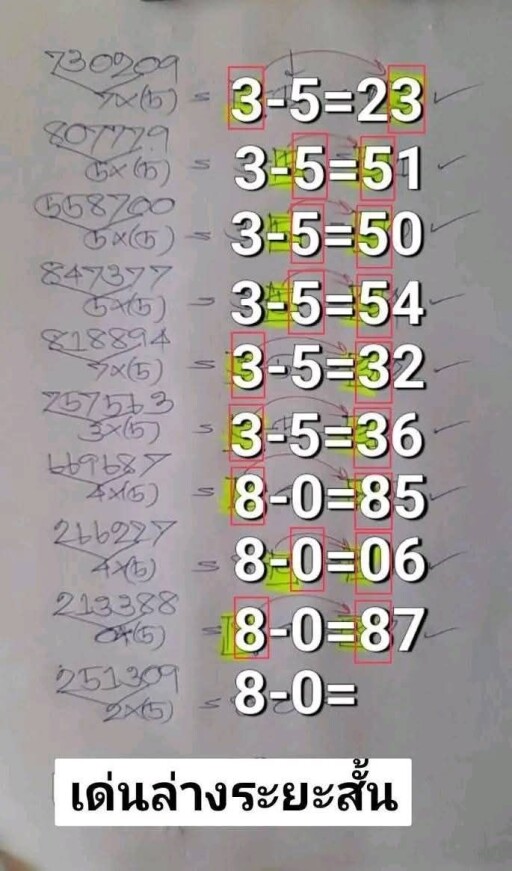 730209
7x(5) = 3-5=23
807779
5x(5) = 3-5=51
558700
5x(5) = 3-5=50
847377
5x(5) = 3-5=54
818894
7x(5) = 3-5=32
757563
3x(5) = 3-5=36
669687
4x(5) = 8-0=85
266227
4x(5) = 8-0=06
213388
0x(5) = 8-0=87
251309
2x(5) = 8-0=
เด่นล่างระยะสั้น